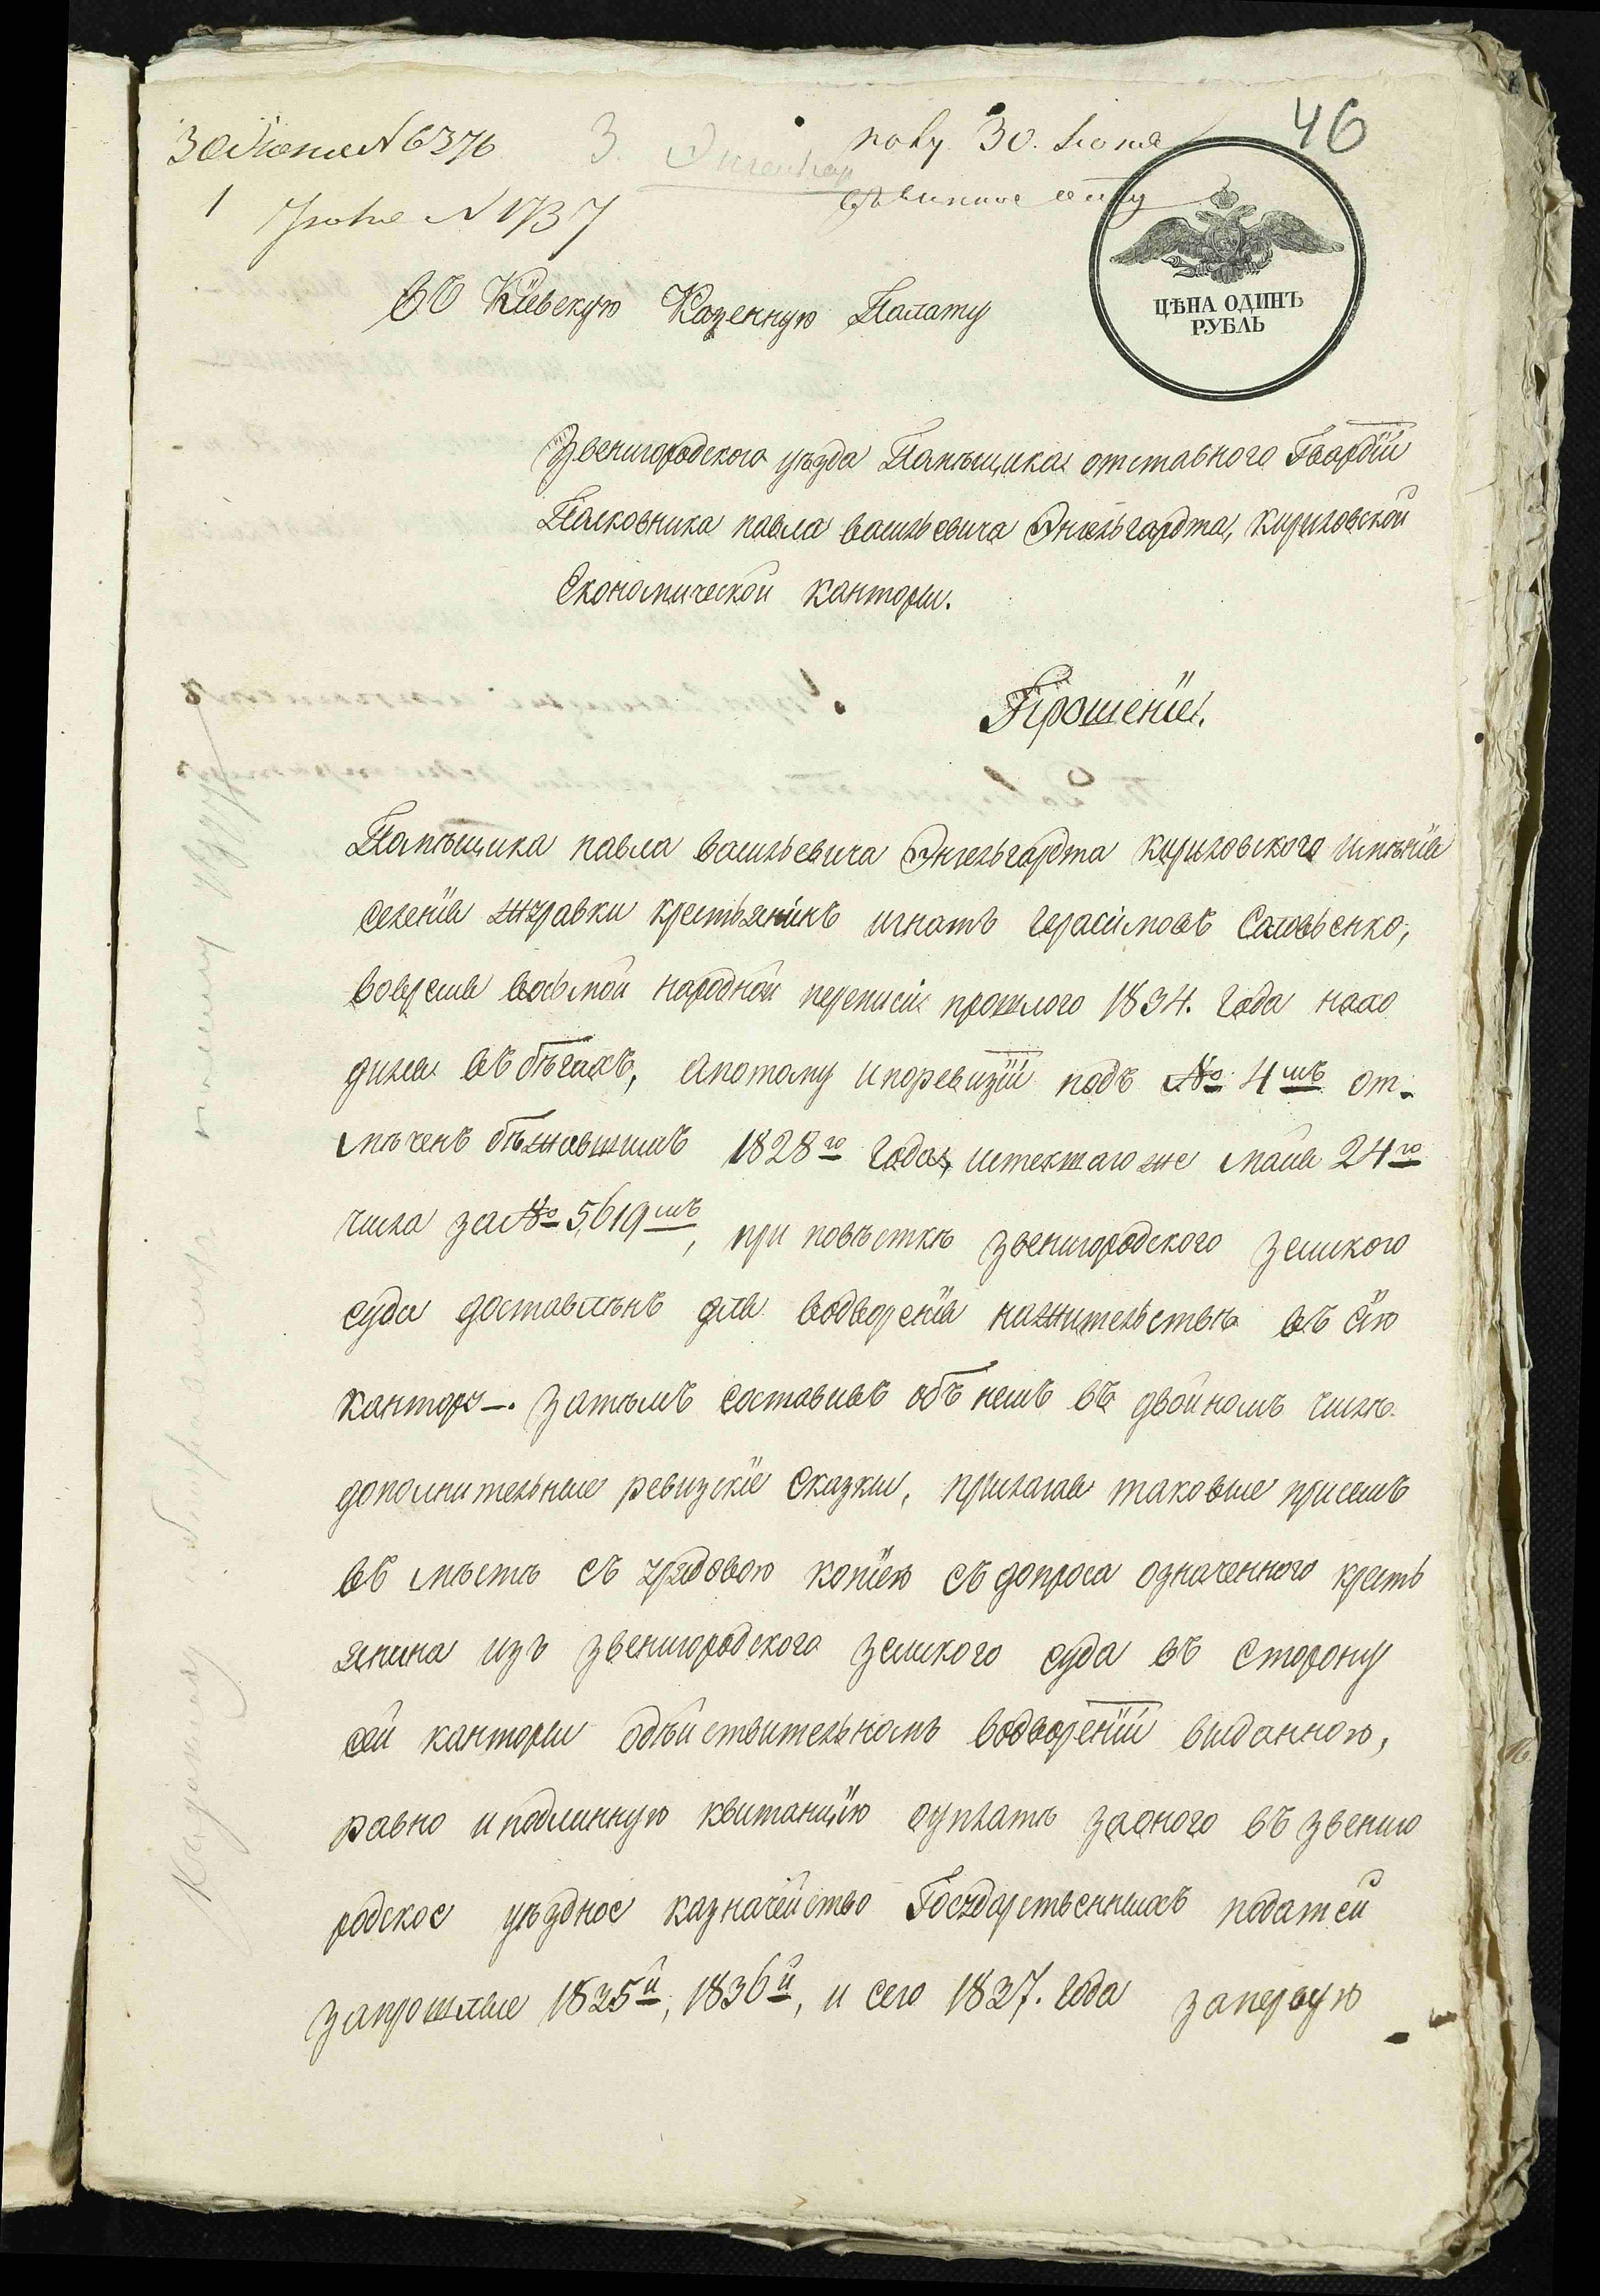 30 Июня № 6376
полу. 30. Июня
46
1 № 1737
ЦѢНА ОДИНЪ
РУБЛЬ
Въ Кіевскую Казенную Палату
Звенигородского уѣзда Памѣщика отставного Гвардіи
Палковника павла васильевича Энгельгардта, кириловской
Економической канторы.
Прошеніе.
Памѣщика павла васильевича Энгельгардта кириловского имѣнія
селенія журавки крестьянинъ игнатъ герасимовъ Соловьенко,
вовремя восьмой народной переписи прошлого 1834. года нахо
дился въ бѣгахъ, апотому и поревизіи подъ № 4мъ от-
мѣченъ бѣжавшимъ 1828го года, истекшаго же маия 24го
числа за № 5619мъ, при повѣсткѣ звенигородского земского
суда доставлѣнъ для водворенія нажительствѣ въ сію
кантору. Затѣмъ составивъ объ немъ въ двойномъ числѣ
дополнительные ревизскіе сказки, прилагая таковые присемъ
въ мѣстѣ съ рядовою копіею съ допроса означенного кресть
янина изъ звенигородского земского суда въ сторону
сей канторы одѣйствительномъ водвореніи выданною,
равно и подлинную квитанцію оуплатѣ заоного въ звениго
родское уѣздное казначейство Государственныхъ податей
запрошлые 1835й, 1836й, и сего 1837. года запервую